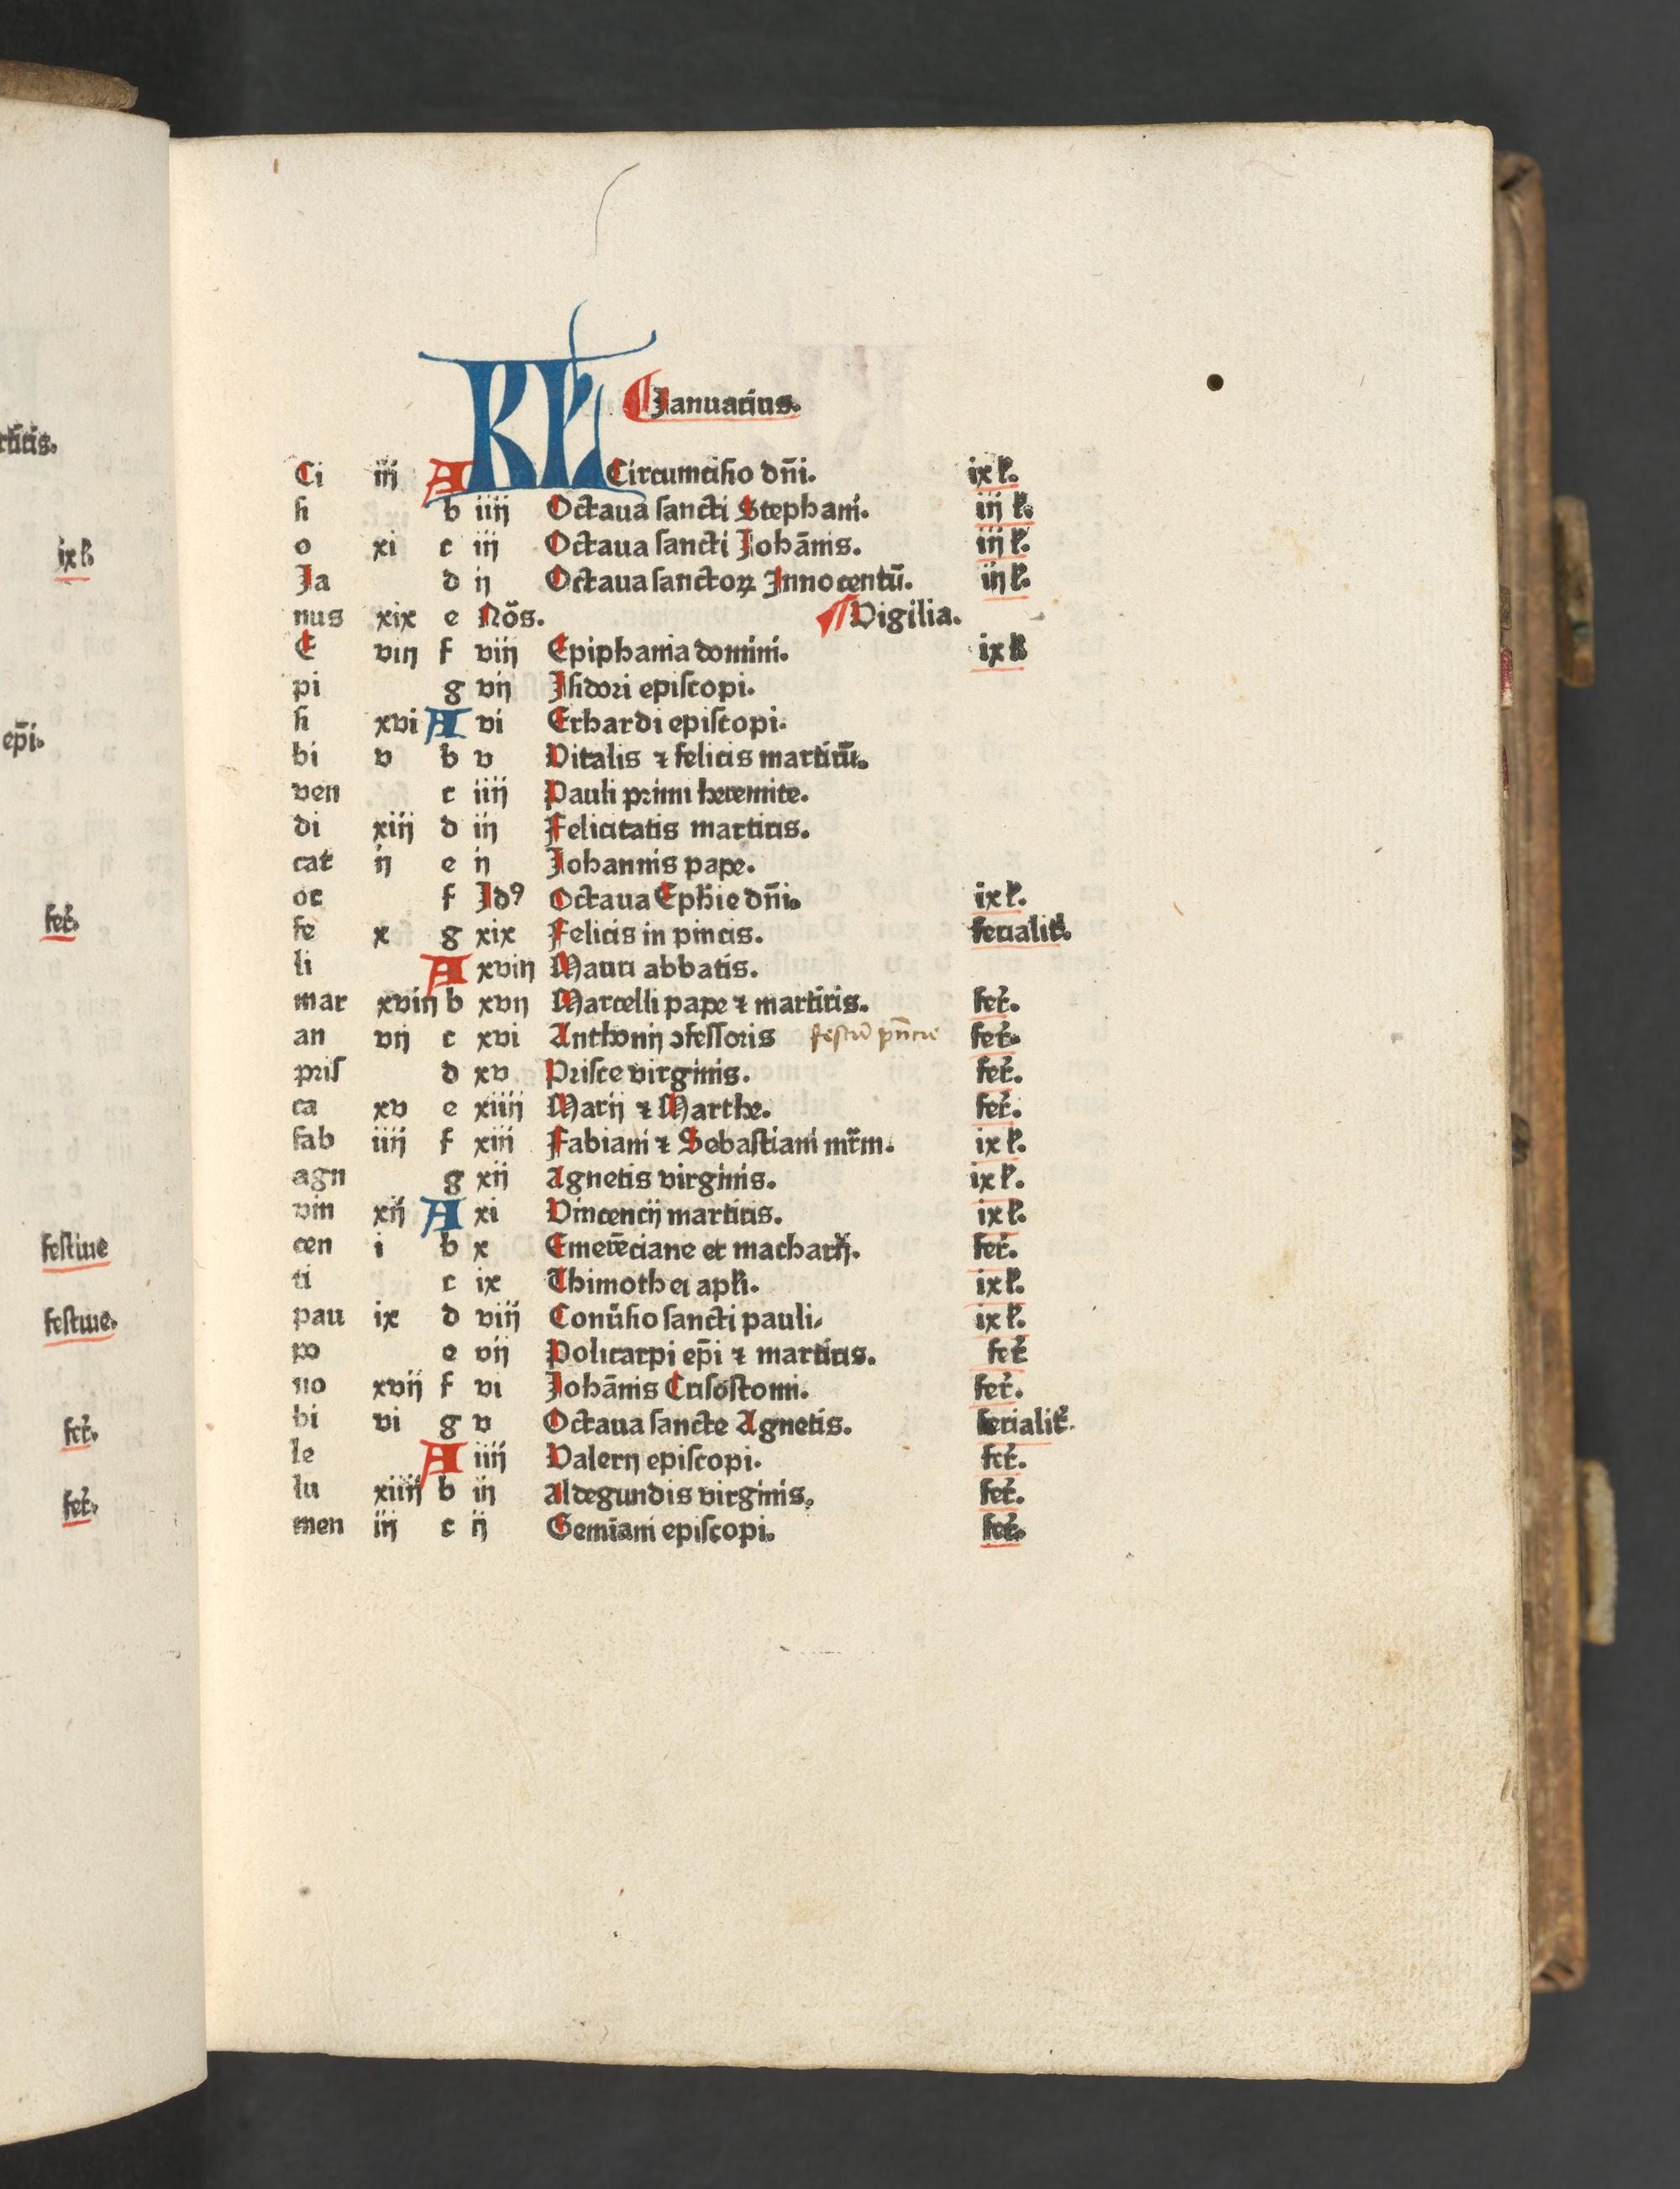 rtiris.
ix l.
epi.
fer.
festiue
festiue.
fer.
fer.
KL Januarius.
Ci iij A Circumcisio dñi. ix l.
si b iiij Octaua sancti Stephani. iij l.
o xi c iij Octaua sancti Johānis. iij l.
Ja d ij Octaua sanctoꝝ Innocentū. iij l.
nus xix e Nōs. Vigilia.
E viij f viij Epiphania domini. ix l
pi g vij Isidori episcopi.
si xvi A vi Erhardi episcopi.
bi v b v Vitalis ⁊ felicis martirū.
ven c iiij Pauli primi heremite.
di xiij d iij Felicitatis martiris.
cat ij e ij Johannis pape.
oc f Idꝰ Octaua Ephie dñi. ix l.
fe x g xix Felicis in pincis. ferialit̄.
li A xviij Mauri abbatis.
mar xviij b xvij Marcelli pape ⁊ martiris. fer.
an vij c xvi Anthonij ɔfessoris fer.
pris d xv Prisce virginis. fer.
ca xv e xiiij Marij ⁊ Marthe. fer.
fab iiij f xiij Fabiani ⁊ Sebastiani mr̄m. ix l.
agn g xij Agnetis virginis. ix l.
vin xij A xi Vincencij martiris. ix l.
cen i b x Emerēciane et macharij. fer.
ti c ix Thimothei apli. ix l.
pau ix d viij Conūsio sancti pauli. ix l.
po e vij Policarpi ep̄i ⁊ martiris. fer
no xvij f vi Johānis Crisostomi. fer.
bi vi g v Octaua sancte Agnetis. ferialit̄.
le A iiij Valerij episcopi. fer.
lu xiiij b iij Aldegundis virginis. fer.
men iij c ij Gemiani episcopi. fer.